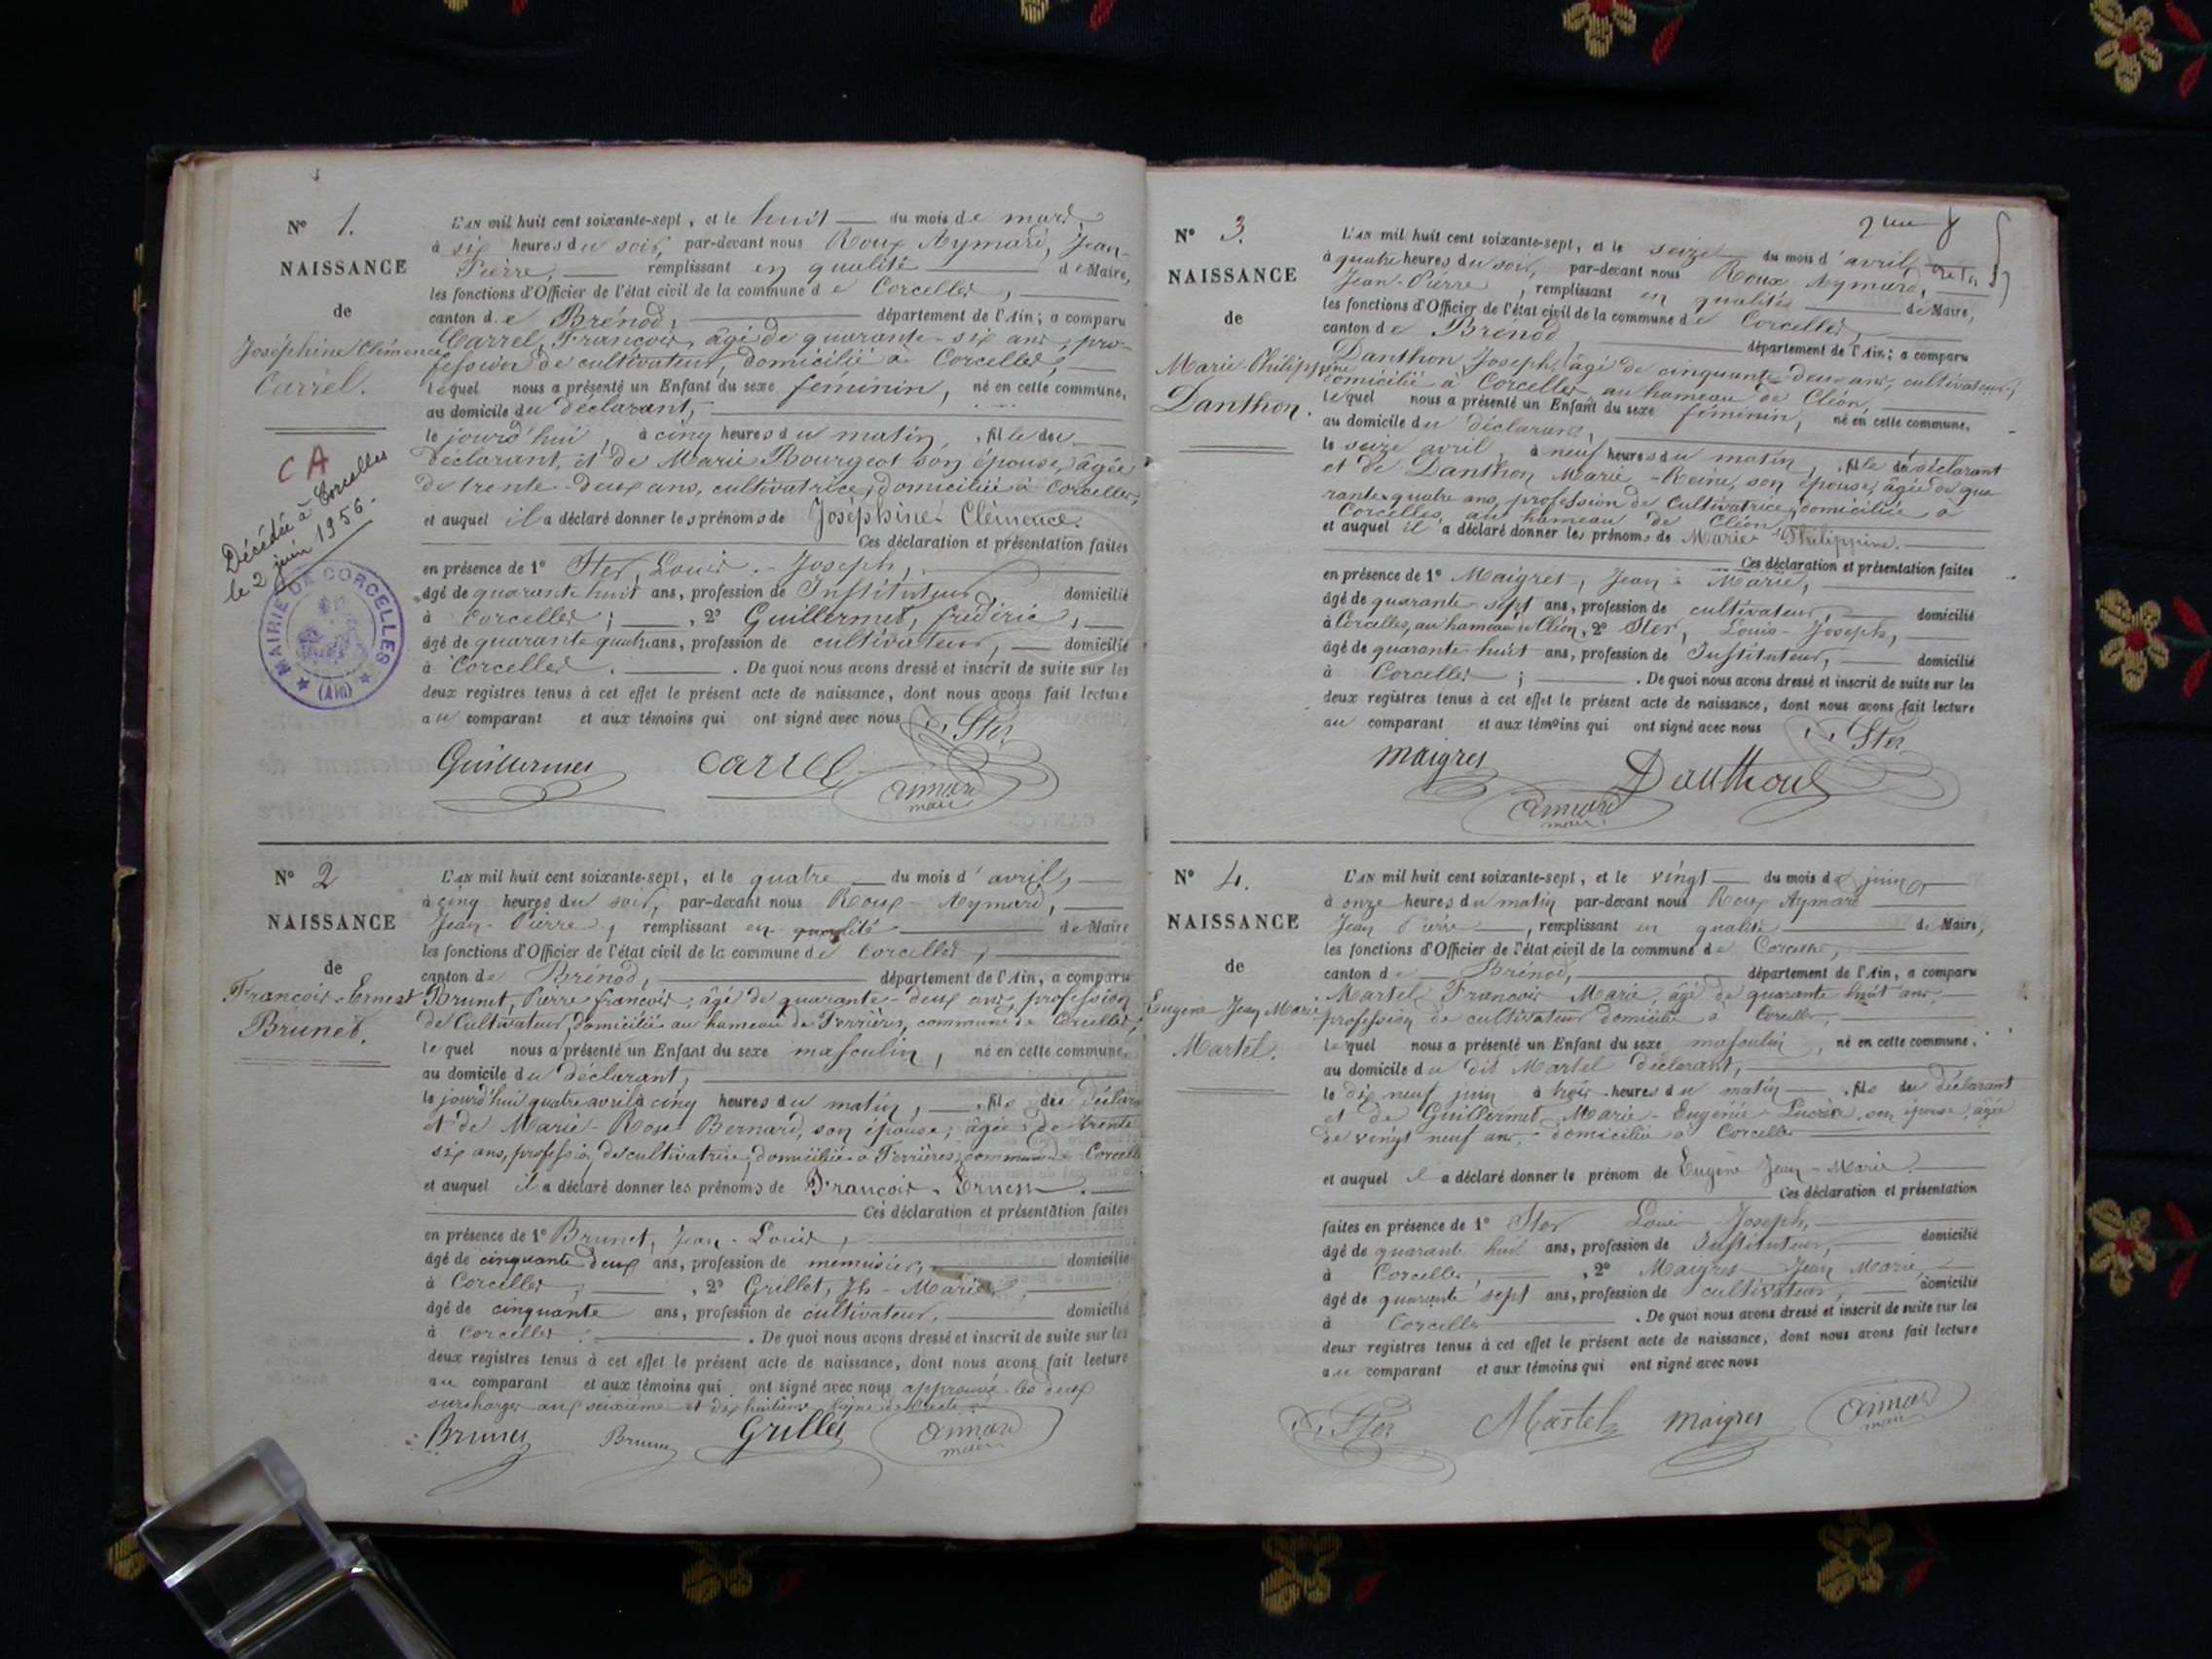 N° 1.
NAISSANCE
de
Joséphine Clémence
Carrel.
CA
Décédée à Corcelles
le 2 juin 1956.
MAIRIE DE CORCELLES
(AIN)
L'AN mil huit cent soixante-sept, et le huit du mois de mars,
à six heures du soir, par-devant nous Roux Aymard, Jean-
Pierre, remplissant en qualité de Maire,
les fonctions d'Officier de l'état civil de la commune de Corcelles,
canton de Brénod, département de l'Ain; a comparu
Carrel, François, âgé de quarante-six ans, pro-
fession de cultivateur, domicilié à Corcelles,
lequel nous a présenté un Enfant du sexe féminin, né en cette commune,
au domicile du déclarant,
le jourd'hui, à cinq heures du matin, fille du
déclarant, et de Marie Bourgeot son épouse, âgée
de trente-deux ans, cultivatrice, domiciliée à Corcelles,
et auquel il a déclaré donner les prénoms de Joséphine-Clémence.
Ces déclaration et présentation faites
en présence de 1° Ster, Louis-Joseph,
âgé de quarante huit ans, profession de Instituteur, domicilié
à Corcelles; , 2° Guillermet, frédéric,
âgé de quarante quatre ans, profession de cultivateur, domicilié
à Corcelles. . De quoi nous avons dressé et inscrit de suite sur les
deux registres tenus à cet effet le présent acte de naissance, dont nous avons fait lecture
au comparant et aux témoins qui ont signé avec nous
Ster
Guillermet Carrel Aimard
maire
N° 2
NAISSANCE
de
François-Ernest
Brunet.
L'AN mil huit cent soixante-sept, et le quatre du mois d'avril,
à cinq heures du soir, par-devant nous Roux-Aymard,
Jean-Pierre, remplissant en qualité de Maire
les fonctions d'Officier de l'état civil de la commune de Corcelles,
canton de Brénod, département de l'Ain, a comparu
Brunet, Pierre françois, âgé de quarante-deux ans, profession
de Cultivateur, domicilié au hameau de Ferrières, commune de Corcelles,
lequel nous a présenté un Enfant du sexe masculin, né en cette commune,
au domicile du déclarant,
le jourd'hui quatre avril à cinq heures du matin, fils du déclara
et de Marie-Rose Bernard, son épouse; âgée de trente
six ans, profession de cultivatrice, domiciliée à Ferrières, commune de Corcelle
et auquel il a déclaré donner les prénoms de François-Ernest.
Ces déclaration et présentation faites
en présence de 1° Brunet, Jean-Louis,
âgé de cinquante deux ans, profession de menuisier, domicilié
à Corcelles, , 2° Grillet, Jh-Marie,
âgé de cinquante ans, profession de cultivateur, domicilié
à Corcelles. . De quoi nous avons dressé et inscrit de suite sur les
deux registres tenus à cet effet le présent acte de naissance, dont nous avons fait lecture
au comparant et aux témoins qui ont signé avec nous approuvé les deux
surcharges aux seizième et dix huitième
Brunet Brunet Grillet Aimard
maire
N° 3.
NAISSANCE
de
Marie-Philippine
Danthon.
L'AN mil huit cent soixante-sept, et le seize du mois d'avril
à quatre heures du soir, par-devant nous Roux Aymard,
Jean-Pierre, remplissant en qualités de Maire,
les fonctions d'Officier de l'état civil de la commune de Corcelles,
canton de Brenod département de l'Ain; a comparu
Danthon, Joseph, âgé de cinquante-deux ans, cultivateur,
domicilié à Corcelles, au hameau de Cléon,
lequel nous a présenté un Enfant du sexe féminin, né en cette commune.
au domicile du déclarant,
le seize avril, à neuf heures du matin, fille du déclarant
et de Danthon Marie-Reine, son épouse, âgée de qua
rante-quatre ans, profession de Cultivatrice, domiciliée à
Corcelles, au hameau de Cléon,
et auquel il a déclaré donner les prénoms de Marie-Philippine.
Ces déclaration et présentation faites
en présence de 1° Maigret, Jean-Marie,
âgé de quarante-sept ans, profession de cultivateur, domicilié
à Corcelles, au hameau de Cléon, 2° Ster, Louis-Joseph,
âgé de quarante-huit ans, profession de Instituteur, domicilié
à Corcelles; . De quoi nous avons dressé et inscrit de suite sur les
deux registres tenus à cet effet le présent acte de naissance, dont nous avons fait lecture
au comparant et aux témoins qui ont signé avec nous
Ster
Maigret Danthon
Aimard
maire
N° 4.
NAISSANCE
de
Eugène Jean Marie
Martel.
L'AN mil huit cent soixante-sept, et le vingt du mois de juin
à onze heures du matin par-devant nous Roux Aymard
Jean Pierre, remplissant en qualité de Maire,
les fonctions d'Officier de l'état civil de la commune de Corcelles,
canton de Brénod, département de l'Ain, a comparu
Martel, François Marie, âgé de quarante huit ans,
profession de cultivateur domicilié à Corcelles,
lequel nous a présenté un Enfant du sexe masculin, né en cette commune.
au domicile du dit Martel déclarant,
le dix neuf juin à trois heures du matin fils du déclarant
et de Guillermet Marie-Eugénie son épouse, âgée
de vingt neuf ans, domiciliée à Corcelles
et auquel il a déclaré donner le prénom de Eugène Jean-Marie.
Ces déclaration et présentation
faites en présence de 1° Ster Louis-Joseph,
âgé de quarante huit ans, profession de Instituteur, domicilié
à Corcelles, , 2° Maigret Jean Marie,
âgé de quarante sept ans, profession de cultivateur, domicilié
à Corcelles . De quoi nous avons dressé et inscrit de suite sur les
deux registres tenus à cet effet le présent acte de naissance, dont nous avons fait lecture
au comparant et aux témoins qui ont signé avec nous
Ster Martel Maigret Aimard
maire